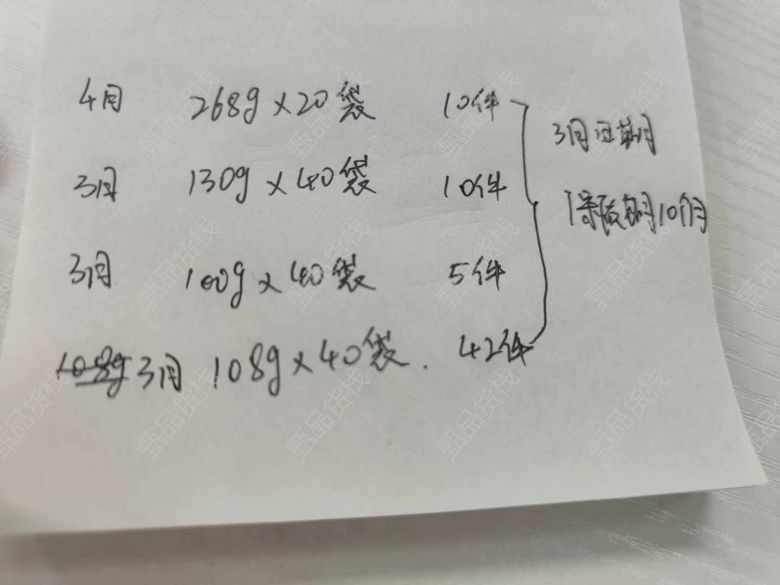 4月 268g×20袋 10件
3月 130g×40袋 10件
3月 100g×40袋 5件
108g 3月 108g×40袋. 42件
3月日期
保质期10个月
甄品货栈